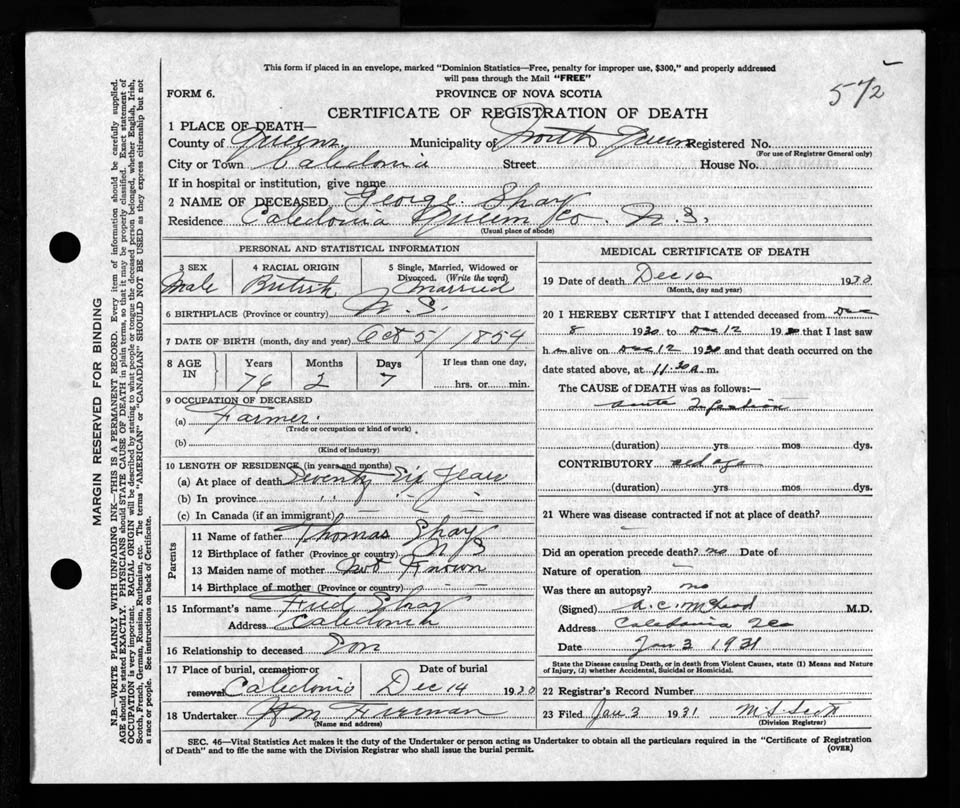 This form if placed in an envelope, marked "Dominion Statistics—Free, penalty for improper use, $300," and properly addressed
will pass through the Mail "FREE"
572
FORM 6.
PROVINCE OF NOVA SCOTIA
CERTIFICATE OF REGISTRATION OF DEATH
1 PLACE OF DEATH—
County of Queens Municipality of North Queens Registered No.
(For use of Registrar General only)
City or Town Caledonia Street House No.
If in hospital or institution, give name
2 NAME OF DECEASED George Shay
Residence Caledonia Queens Co. N.S.
(Usual place of abode)
PERSONAL AND STATISTICAL INFORMATION
3 SEX 4 RACIAL ORIGIN 5 Single, Married, Widowed or
Divorced. (Write the word)
Male British Married
6 BIRTHPLACE (Province or country) N.S.
7 DATE OF BIRTH (month, day and year) Oct 5/1854
8 AGE IN Years Months Days If less than one day,
76 2 7 hrs. or min.
9 OCCUPATION OF DECEASED
(a) Farmer.
(Trade or occupation or kind of work)
(b)
(Kind of industry)
10 LENGTH OF RESIDENCE (in years and months)
(a) At place of death Seventy Six Years
(b) In province " " "
(c) In Canada (if an immigrant) — —
Parents
11 Name of father Thomas Shay
12 Birthplace of father (Province or country) N S
13 Maiden name of mother Not Known
14 Birthplace of mother (Province or country) — —
15 Informant's name Fred Shay
Address Caledonia
16 Relationship to deceased Son
17 Place of burial, cremation or Date of burial
removal Caledonia Dec 14 1930
18 Undertaker Freeman
(Name and address)
MEDICAL CERTIFICATE OF DEATH
19 Date of death Dec 12 1930
(Month, day and year)
20 I HEREBY CERTIFY that I attended deceased from Dec
8 1930 to Dec 12 1930 that I last saw
h m alive on Dec 12 1930 and that death occurred on the
date stated above, at 11.30 a.m.
The CAUSE of DEATH was as follows:—
acute
(duration) yrs mos dys.
CONTRIBUTORY old age
(duration) yrs mos dys.
21 Where was disease contracted if not at place of death?
—
Did an operation precede death? no Date of
Nature of operation —
Was there an autopsy? no
(Signed) A. C. McLeod M.D.
Address Caledonia
Date Jan 3 1931
State the Disease causing Death, or in death from Violent Causes, state (1) Means and Nature
of Injury, (2) whether Accidental, Suicidal or Homicidal.
22 Registrar's Record Number
23 Filed Jan 3 1931 M S Scott
(Division Registrar)
SEC. 46—Vital Statistics Act makes it the duty of the Undertaker or person acting as Undertaker to obtain all the particulars required in the "Certificate of Registration
of Death" and to file the same with the Division Registrar who shall issue the burial permit. (OVER)
MARGIN RESERVED FOR BINDING
N.B.—WRITE PLAINLY WITH UNFADING INK—THIS IS A PERMANENT RECORD. Every items of information should be carefully supplied.
AGE should be stated EXACTLY. PHYSICIANS should STATE CAUSE OF DEATH in plain terms, so that it may be properly classified. Exact statement of
OCCUPATION is very important. RACIAL ORIGIN will be described by stating to what people or tongue the deceased person belonged, whether English, Irish,
Scotch, French, German, Russian, Ruthenian, etc. The terms "AMERICAN" or "CANADIAN" SHOULD NOT BE USED as they express citizenship but not
a race or people. See instructions on back of Certificate.